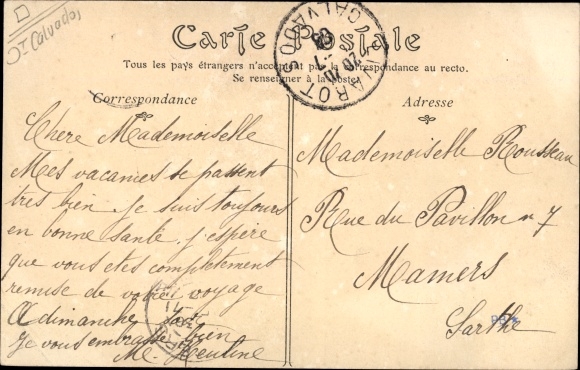 Dt Calvados
Carte Postale
Tous les pays étrangers n'acceptent pas la correspondance au recto.
Se renseigner à la poste
Correspondance
Chere Mademoiselle
Mes vacances se passent
tres bien. je suis toujours
en bonne santé. j'espere
que vous etes completement
remise de votre voyage
A dimanche
Je vous embrasse bien
M.
Adresse
Mademoiselle Rousseau
Rue du Pavillon n 7
Mamers
Sarthe
CALVADOS